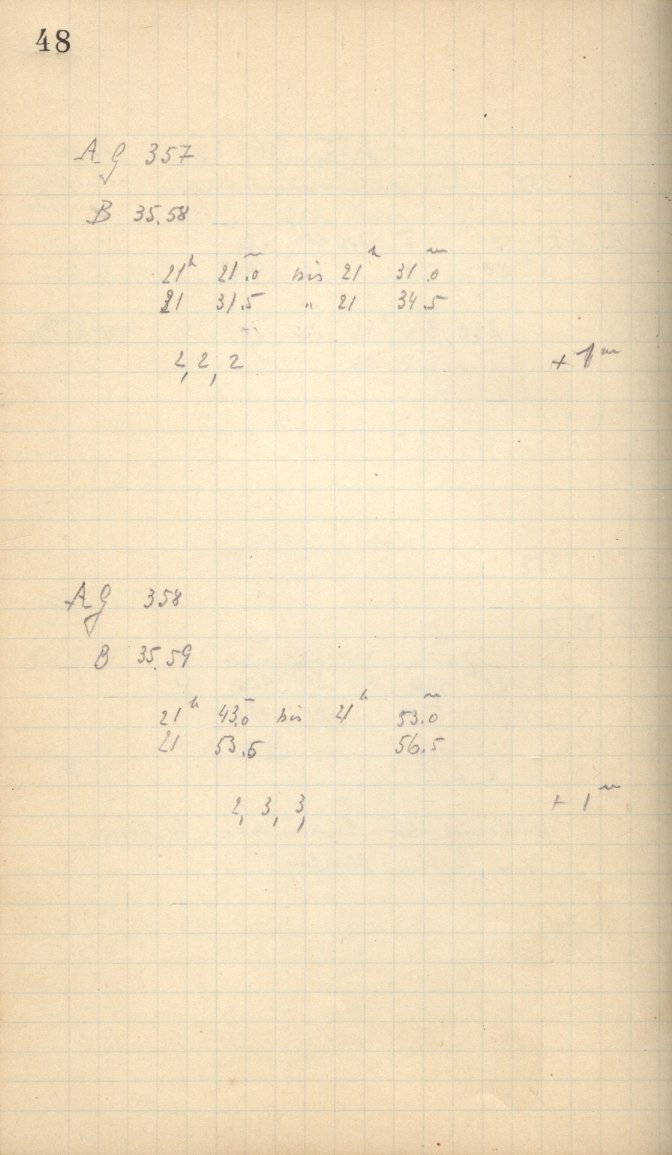 48
AG 357
B 35.58
21h 21m.0 bis 21h 31m.0
21 31.5 " 21 34.5
2, 2, 2
+ 1m
AG 358
B 35.59
21h 43m.0 bis 21h 53m.0
21 53.5 56.5
2, 3, 3,
+ 1m